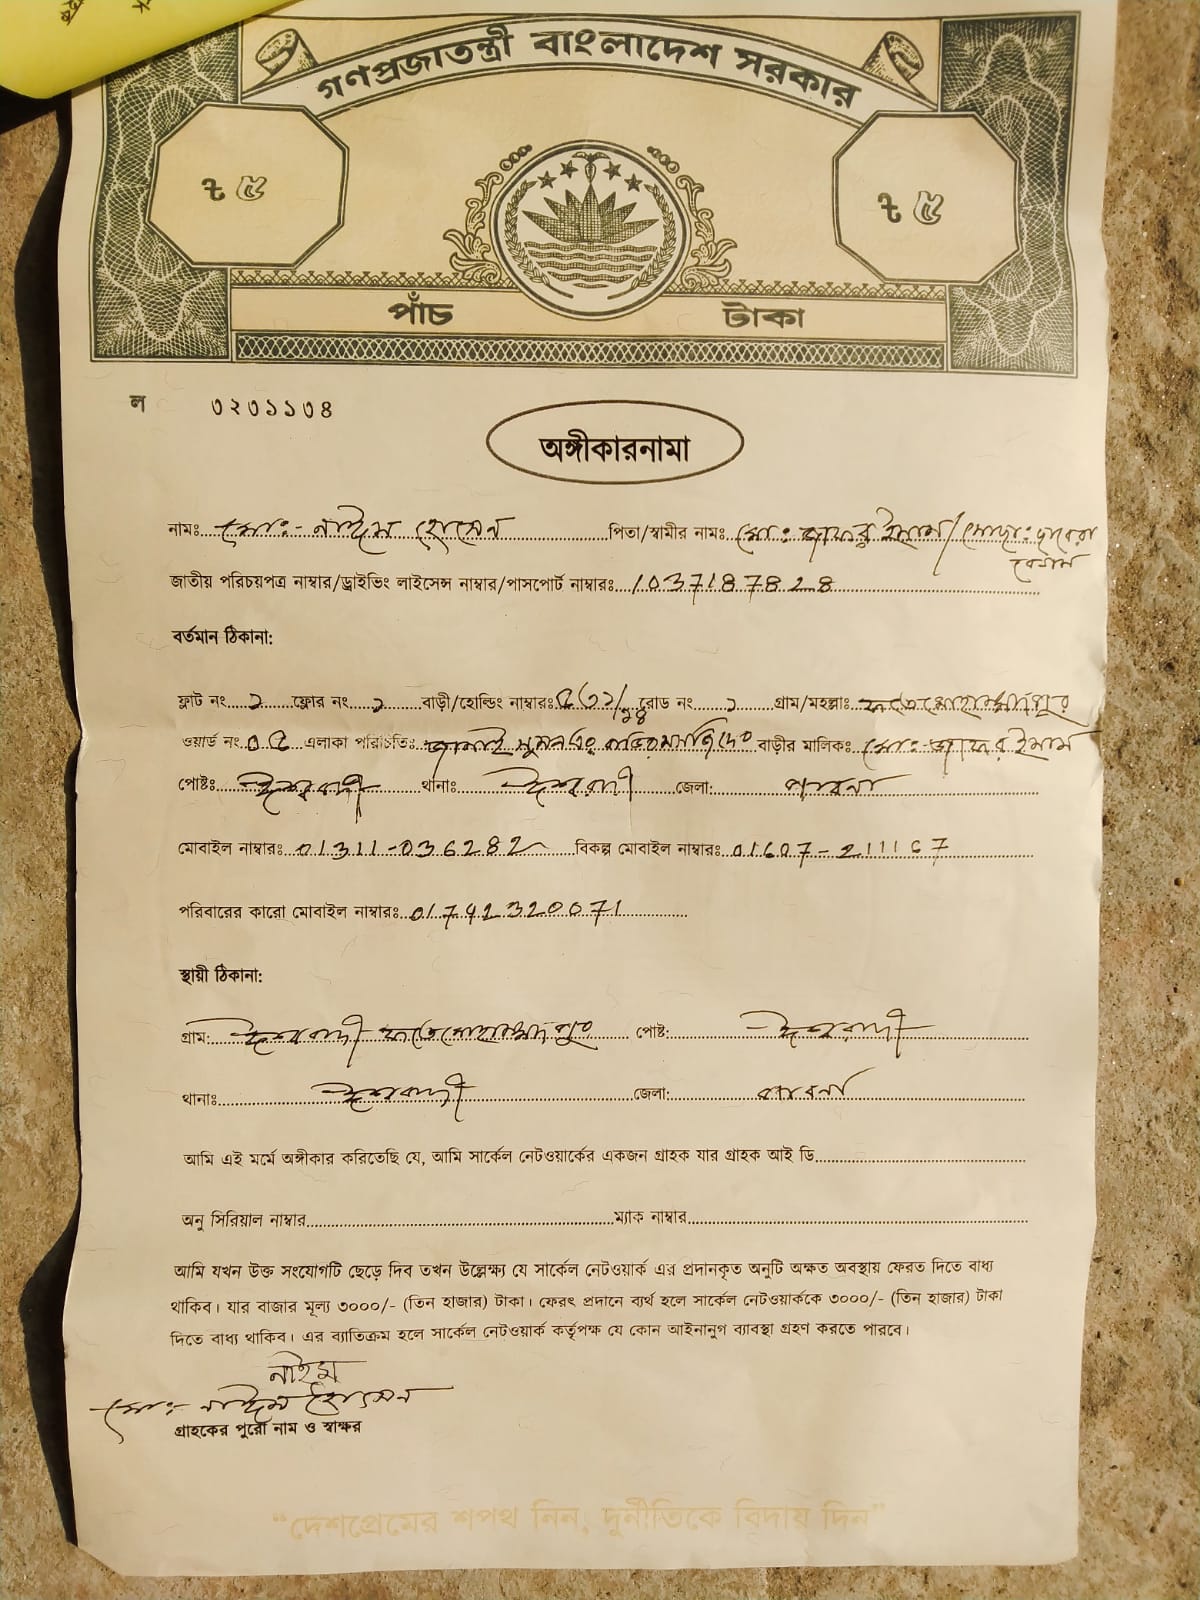 গণপ্রজাতন্ত্রী বাংলাদেশ সরকার
৳ ৫
৳ ৫
পাঁচ টাকা
ল ৩২৩১১৩৪
অঙ্গীকারনামা
নামঃ মোঃ- নাঈম হোসেন পিতা/স্বামীর নামঃ মোঃ জাফর ইমাম/মোছাঃ
বেগম
জাতীয় পরিচয়পত্র নাম্বার/ড্রাইভিং লাইসেন্স নাম্বার/পাসপোর্ট নাম্বারঃ 1037187828
বর্তমান ঠিকানা:
ফ্লাট নং ১ ফ্লোর নং ১ বাড়ী/হোল্ডিং নাম্বারঃ রোড নং ১ গ্রাম/মহল্লাঃ ফতেমোহাম্মদপুর
ওয়ার্ড নং ০৫ এলাকা পরিচিতিঃ বাড়ীর মালিকঃ মোঃ- জাফর ইমাম
পোষ্টঃ ঈশ্বরদী থানাঃ ঈশ্বরদী জেলা: পাবনা
মোবাইল নাম্বারঃ 01311-036282 বিকল্প মোবাইল নাম্বারঃ 01607-211167
পরিবারের কারো মোবাইল নাম্বারঃ 01742320071
স্থায়ী ঠিকানা:
গ্রাম: ঈশ্বরদী ফতেমোহাম্মদপুর পোষ্ট: ঈশ্বরদী
থানাঃ ঈশ্বরদী জেলা: পাবনা
আমি এই মর্মে অঙ্গীকার করিতেছি যে, আমি সার্কেল নেটওয়ার্কের একজন গ্রাহক যার গ্রাহক আই ডি
অনু সিরিয়াল নাম্বার ম্যাক নাম্বার
আমি যখন উক্ত সংযোগটি ছেড়ে দিব তখন উল্লেক্ষ্য যে সার্কেল নেটওয়ার্ক এর প্রদানকৃত অনুটি অক্ষত অবস্থায় ফেরত দিতে বাধ্য
থাকিব। যার বাজার মূল্য ৩০০০/- (তিন হাজার) টাকা। ফেরৎ প্রদানে ব্যর্থ হলে সার্কেল নেটওয়ার্ককে ৩০০০/- (তিন হাজার) টাকা
দিতে বাধ্য থাকিব। এর ব্যাতিক্রম হলে সার্কেল নেটওয়ার্ক কর্তৃপক্ষ যে কোন আইনানুগ ব্যাবস্থা গ্রহণ করতে পারবে।
নাইম
মোঃ- নাঈম হোসেন
গ্রাহকের পুরো নাম ও স্বাক্ষর
“দেশপ্রেমের শপথ নিন, দুর্নীতিকে বিদায় দিন”